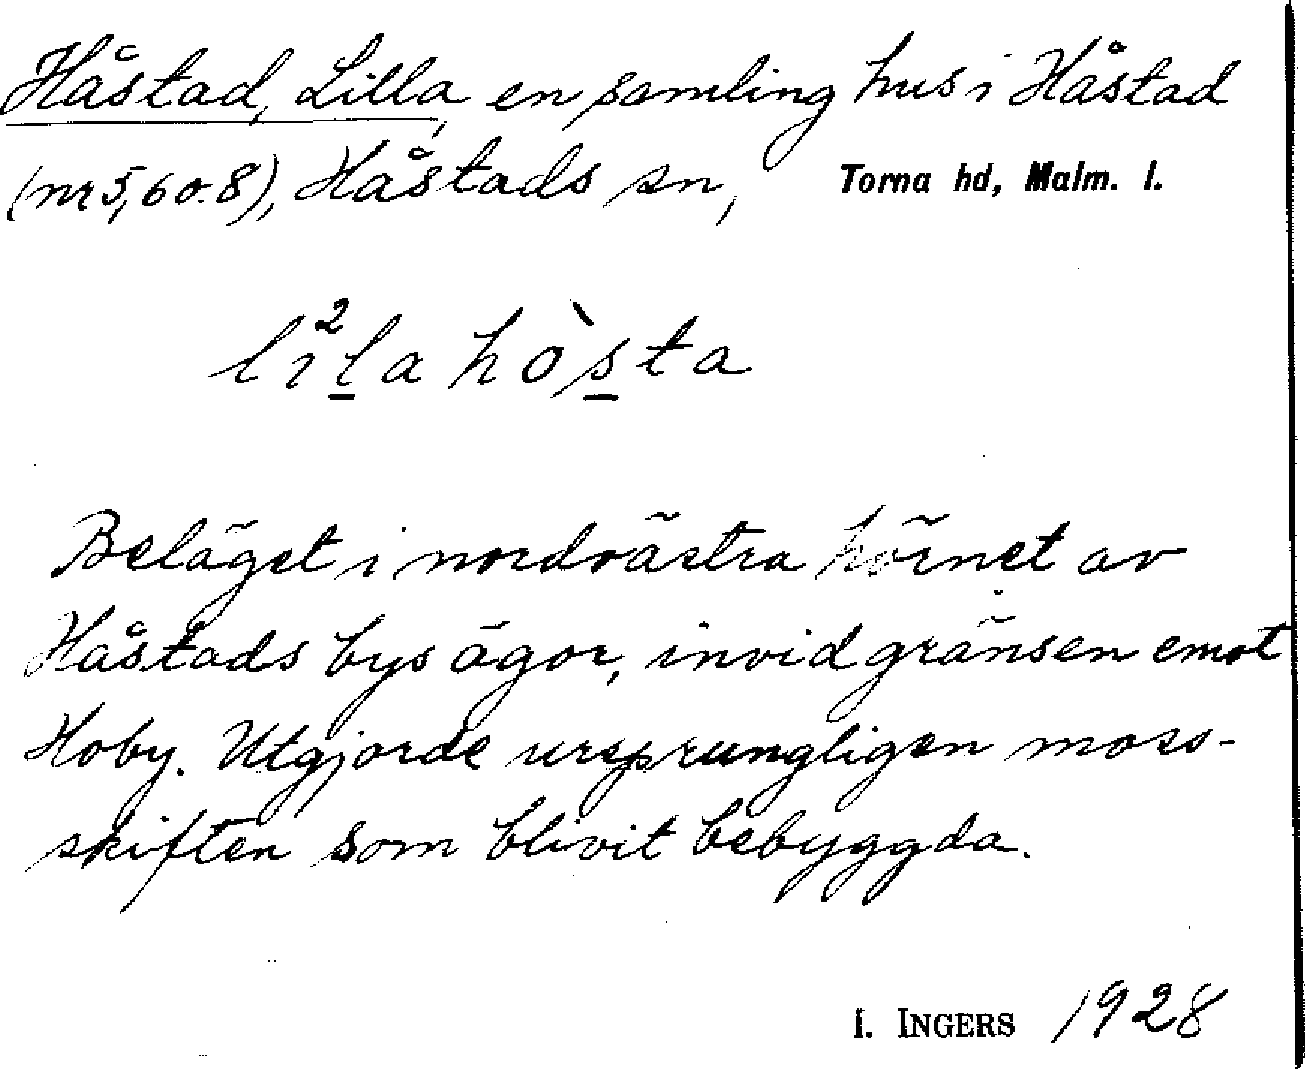 Håstad, Lilla, en samling hus i Håstad
(nr 5, 6 o. 8), Håstads sn, Torna hd, Malm. l.
li²l̲a hòs̲ta
Beläget i nordvästra hörnet av
Håstads bys ägor, invid gränsen emot
Hoby. Utgjorde ursprungligen moss-
skiften som blivit bebyggda.
I. INGERS 1928